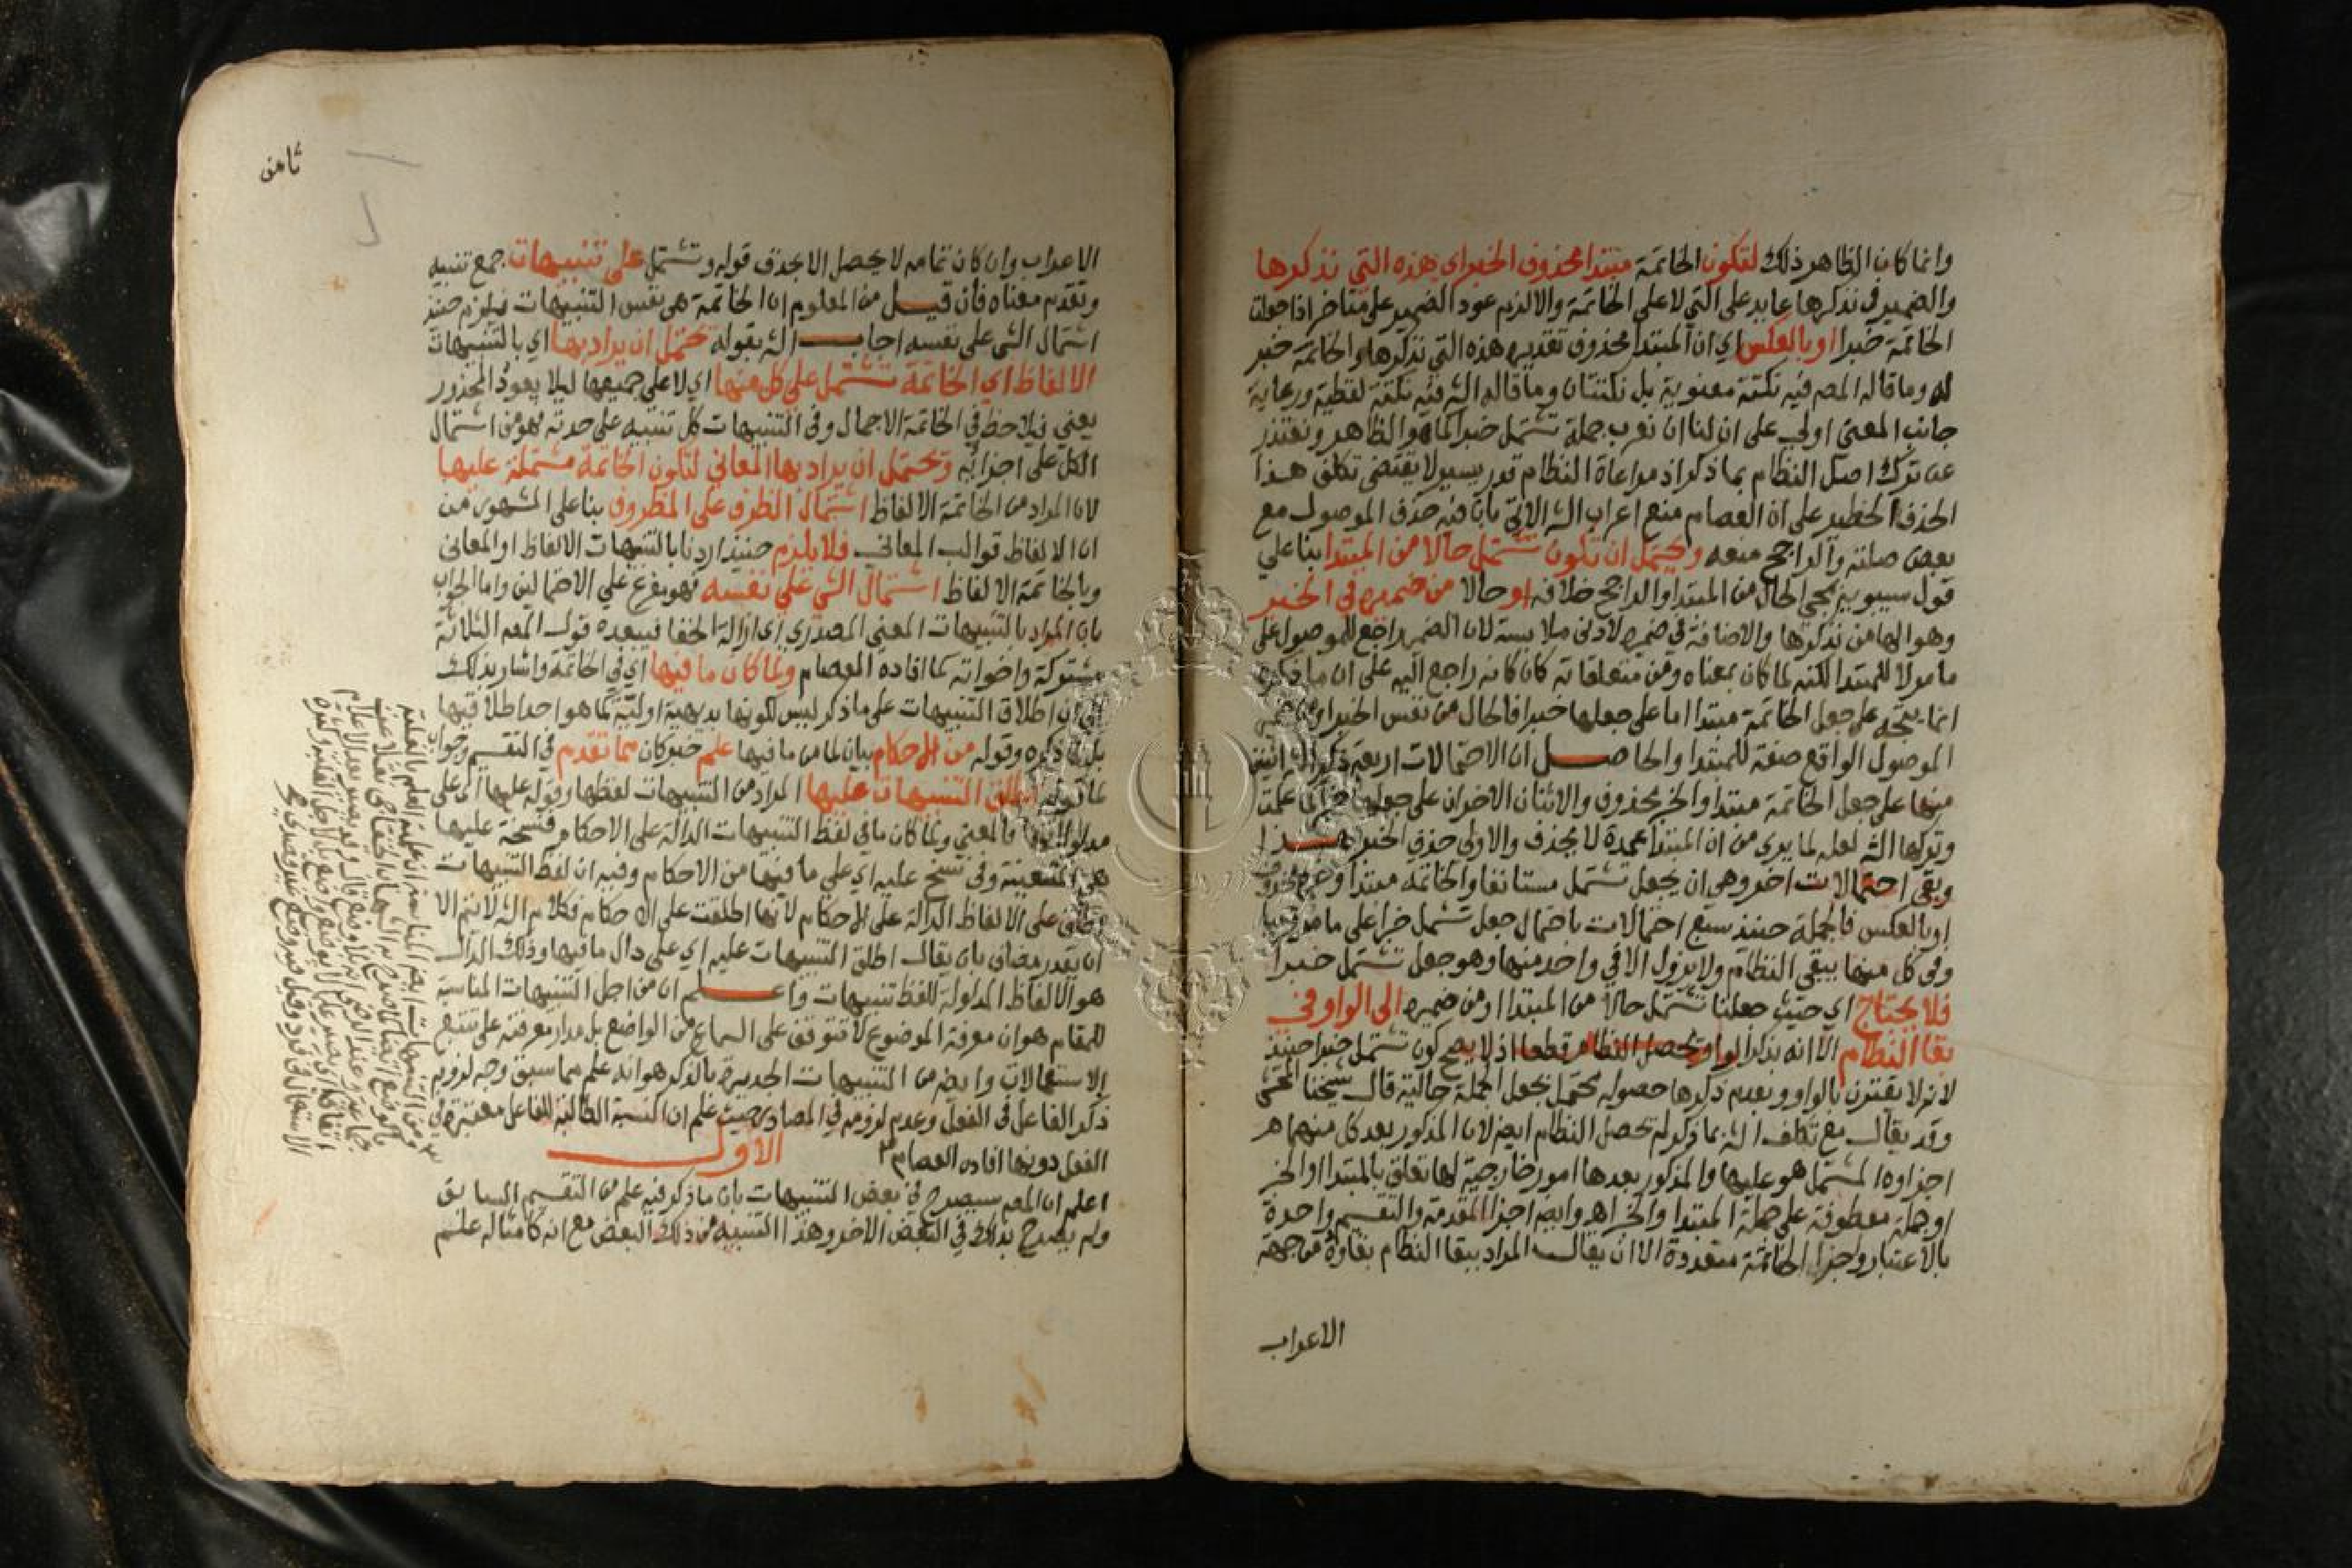 وانما كان الظاهر ذلك لتكون الخاتمة مبتدا محذوف الخبر اي هذه التي نذكرها
والضمير في نذكرها عايد على التي لا على الخاتمة والا لزم عود الضمير على متاخر اذا جعلت
الخاتمة خبرا او بالعكس اي ان المبتدا محذوف تقديره هذه التي نذكرها والخاتمة خبر
له وما قاله المصه فيه نكتة معنوية بل نكتتان وما قاله الشه فيه نكتة لفظية ورعاية
جانب المعنى اولى على ان لنا ان نعرب جملة تشتمل خبرا كما هو الظاهر ونعتذر
عن ترك اصل النظام بما ذكر اذ مراعاة النظام قدر يسير لا يقتضى تكلف هذا
الحذف الخطير على ان العصام منع اعراب الشه الاتي بان فيه حذف الموصول مع
بعض صلته والراجح منعه ويحتمل ان تكون تشتمل حالا من المبتدا بنا على
قول سيبويه بمجي الحال من المبتدا والراجح خلافه او حالا من ضميره في الخبر
وهو الها من نذكرها والاضافة في ضميره لادنى ملابسة لان الضمير راجع للموصول على
ما مر لا للمبتدا لكنه لما كان بمعناه ومن متعلقاته كان كانه راجع اليه على ان ما ذكره
انما يتجه على جعل الخاتمة مبتدا اما على جعلها خبرا فالحال من نفس الخبر او من
الموصول الواقع صفة للمبتدا والحاصل ان الاحتمالات اربعة ذكر الشه اثنين
منها على جعل الخاتمة مبتدا والخبر محذوف والاثنان الاخران على جعلها خبرا كما علمت
وتركها الشه لعله لما يرى من ان المبتدا عمدة لا يحذف والاولى حذف الخبر هذا
وبقى احتمالات اخر وهي ان يجعل تشتمل مستانفا والخاتمة مبتدا وخبره محذوف
او بالعكس فالجملة حينئذ سبع احتمالات باحتمال جعل تشتمل خبرا على ما مر
وفي كل منها يبقى النظام ولا يزول الا في واحد منها وهو جعل تشتمل خبرا
فلا يحتاج اي حيث جعلنا تشتمل حالا من المبتدا او من ضميره الى الواو في
بقا النظام الا انه بذكر الواو يحصل النظام قطعا اذ لا يصح كون تشتمل خبرا حينئذ
لانه لا يقترن بالواو وبعدم ذكرها حصوله محتمل بجعل الجملة حالية قال شيخنا المحشى
وقد يقال مع تكلف الشه بما ذكر لم تحصل النظام ايضا لان المذكور بعد كل منهما هر
اجزاوه المشتمل هو عليها والمذكور بعدها امور خارجية لها تعلق بالمبتدا او الخبر
او جملة معطوفة على جملة المبتدا والخبر اهـ وايضا اجزا المقدمة والتقسيم واحدة
بالاعتبار واجزا الخاتمة متعددة الا ان يقال المراد ببقا النظام بقاوه من جهة
الاعراب
ثامن
الاعراب وان كان تمامه لا يحصل الا بحذف قوله وتشتمل على تنبيهات جمع تنبيه
وتقدم معناه فان قيل من المعلوم ان الخاتمة هي نفس التنبيهات فيلزم حينئذ
اشتمال الشى على نفسه اجاب الشه بقوله تحتمل ان يراد بها اي بالتنبيهات
الالفاظ اي الخاتمة تشتمل على كل منها اي لا على جميعها ليلا يعود المحذور
يعني فيلاحظ في الخاتمة الاجمال وفي التنبيهات كل تنبيه على حدته فهو من اشتمال
الكل على اجزائه وتحتمل ان يراد بها المعاني لتكون الخاتمة مشتملة عليها
لان المراد من الخاتمة الالفاظ اشتمال الظرف على المظروف بنا على المشهور من
ان الالفاظ قوالب المعاني فلا يلزم حينئذ اردنا بالتنبيهات الالفاظ او المعانى
وبالخاتمة الالفاظ اشتمال الشى على نفسه فهو مفرع على الاحتمالين واما الجواب
بان المراد بالتنبيهات المعنى المصدري اي ازالة الخفا فيبعده قول المصه الثلاثة
مشتركة واخواته كما افاده العصام ولما كان ما فيها اي في الخاتمة واشار بذلك
الى ان اطلاق التنبيهات على ما ذكر ليس لكونها بديهية اولية كما هو احد اطلاقيها
بل لما ذكره وقوله من الاحكام بيان لما من ما فيها علم خبر كان مما تقدم في التقسيم وجواب
لما قوله اطلق التنبيهات عليها المراد من التنبيهات لفظها وقوله عليها اي على
فالمعنى ولما كان ما في لفظ التنبيهات الدالة على الاحكام فنسخة عليها
هي المتعينة وفي نسخ عليه اي على ما فيها من الاحكام وفيه ان لفظ التنبيهات
اطلق على الالفاظ الدالة على الاحكام لا انها اطلقت على الاحكام فكلام الشه لا يتم الا
ان يقدر مضاف بان يقال اطلق التنبيهات عليه اي على دال ما فيها وذلك الدال
هو الالفاظ المدلولة للفظ تنبيهات واعلم ان من اجل التنبيهات المناسبة
للمقام هو ان معرفة الموضوع لا تتوقف على السماع من الواضع بل مدار معرفته على تتبع
الاستعمالات وايضا من التنبيهات الجديرة بالذكر هو انه علم مما سبق وجه لزوم
ذكر الفاعل في الفعل وعدم لزومه في المصادر حيث علم ان النسبة الطالبة للفاعل معتبرة في
الفعل دونها افاده العصام الاول
اعلم ان المصه سيصرح في بعض التنبيهات بان ما ذكر فيه علم من التقسيم السابق
ولم يصرح بذلك في البعض الاخر وهذا التنبيه من ذلك البعض مع انه كامثاله علم